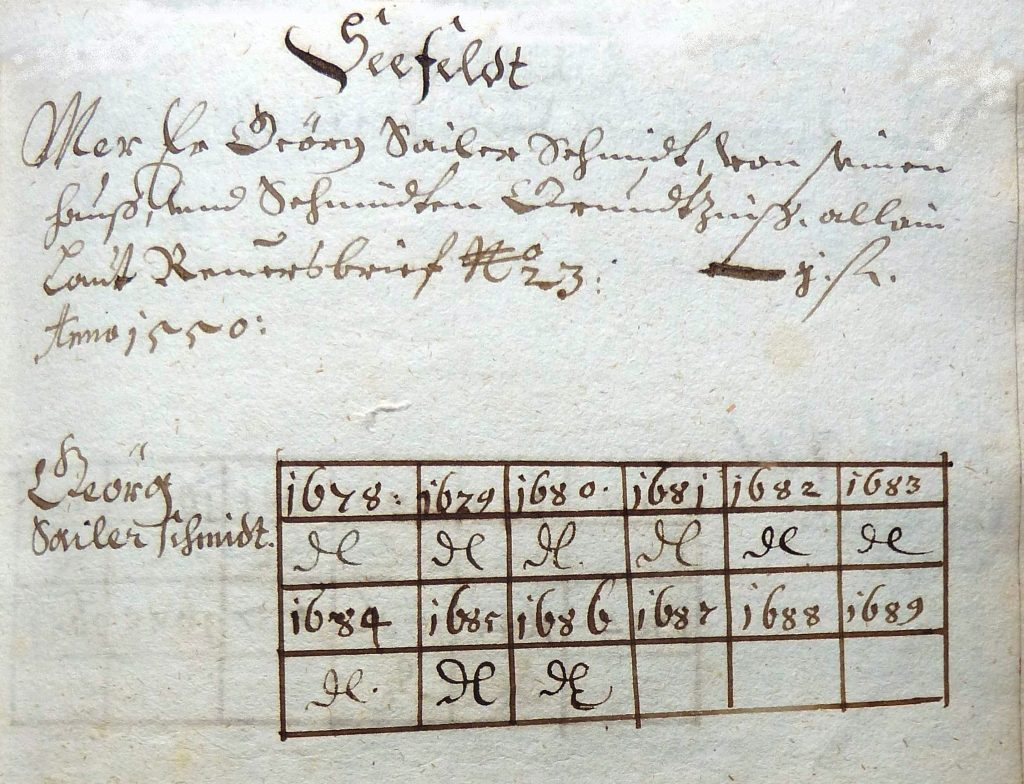 Seefeldt
Mer Er Geörg Sailer Schmidt, von seinen
hauß, und Schmidten Grundtzinß. allain
Laut Reuersbrief No 23:
Anno 1550:
Geörg
Sailer schmidt.
1678: 1679 1680. 1681 1682 1683
dl dl dl. dl dl dl
1684 1685 1686 1687 1688 1689
dl. dl dl